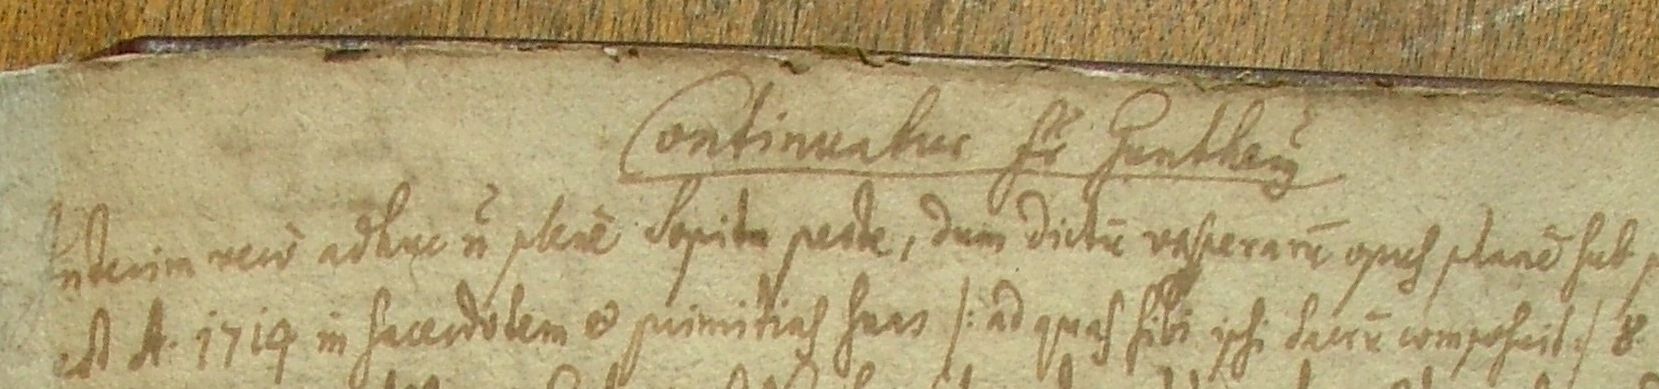 Continuatur Fr Gunther
Interim vero adhuc ñ plene sopita peste, dum dictũ vesperarũ opus plane sub
est A. 1714 in sacerdotem & primitias suas /: ad quas sibi ipsi sacrũ composuit :/ &